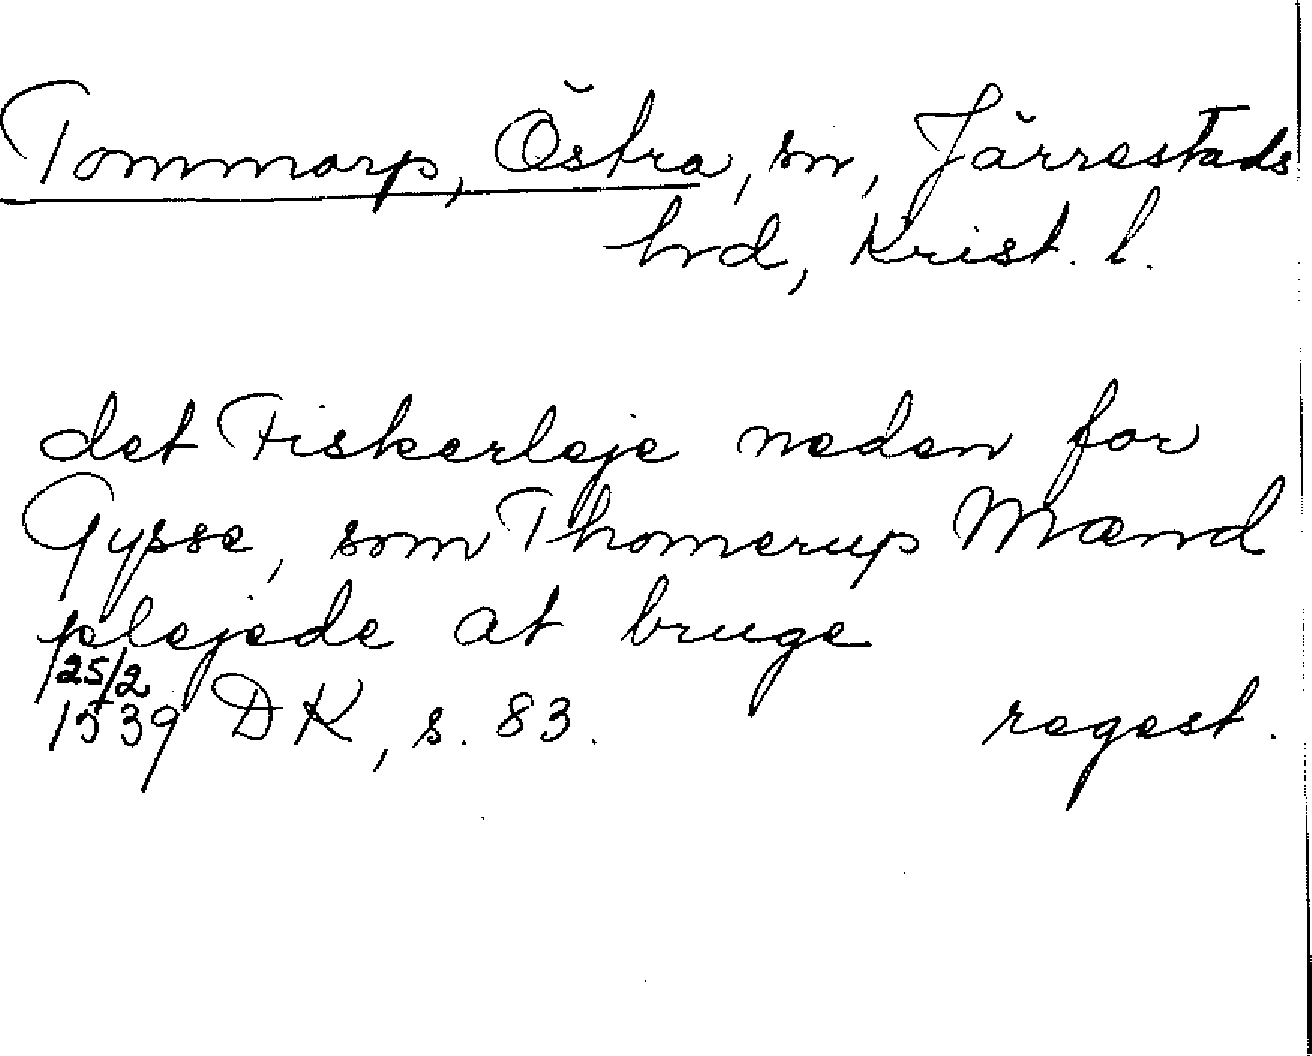 Tommarp, Östra, sn, Järrestads
hrd, Krist. l.
det Fiskerleje neden for
Gypse, som Thomerup Mænd
plejede at bruge
25/2
1539 DK, s. 83. regest.